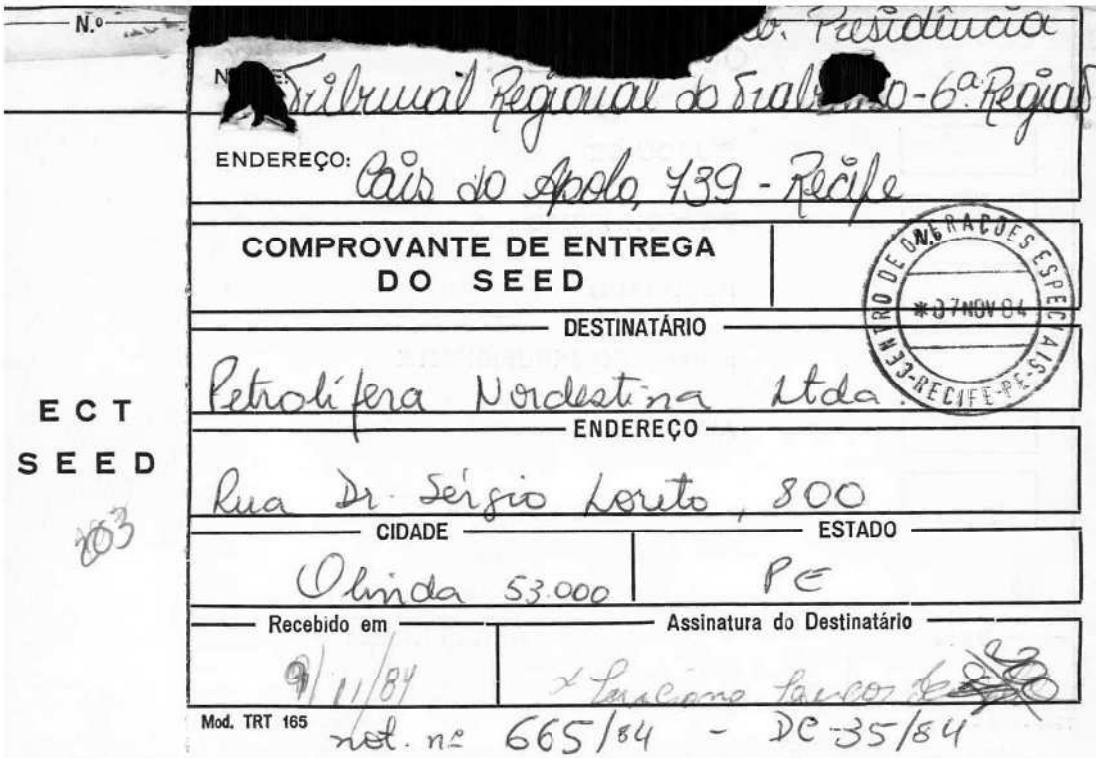 N.º
Presidência
Tribunal Regional do Trabalho-6ª Região
ENDEREÇO:
Cais do Apolo, 739 - Recife
COMPROVANTE DE ENTREGA
DO SEED
CENTRO DE OPERAÇÕES ESPECIAIS
*07NOV84
RECIFE-PE
DESTINATÁRIO
Petrolífera Nordestina Ltda.
ENDEREÇO
ECT
SEED
Rua Dr. Sérgio Loreto, 800
CIDADE
ESTADO
Olinda 53.000
PE
Recebido em
Assinatura do Destinatário
9/11/84
Mod. TRT 165
not. nº 665/84 - DC-35/84